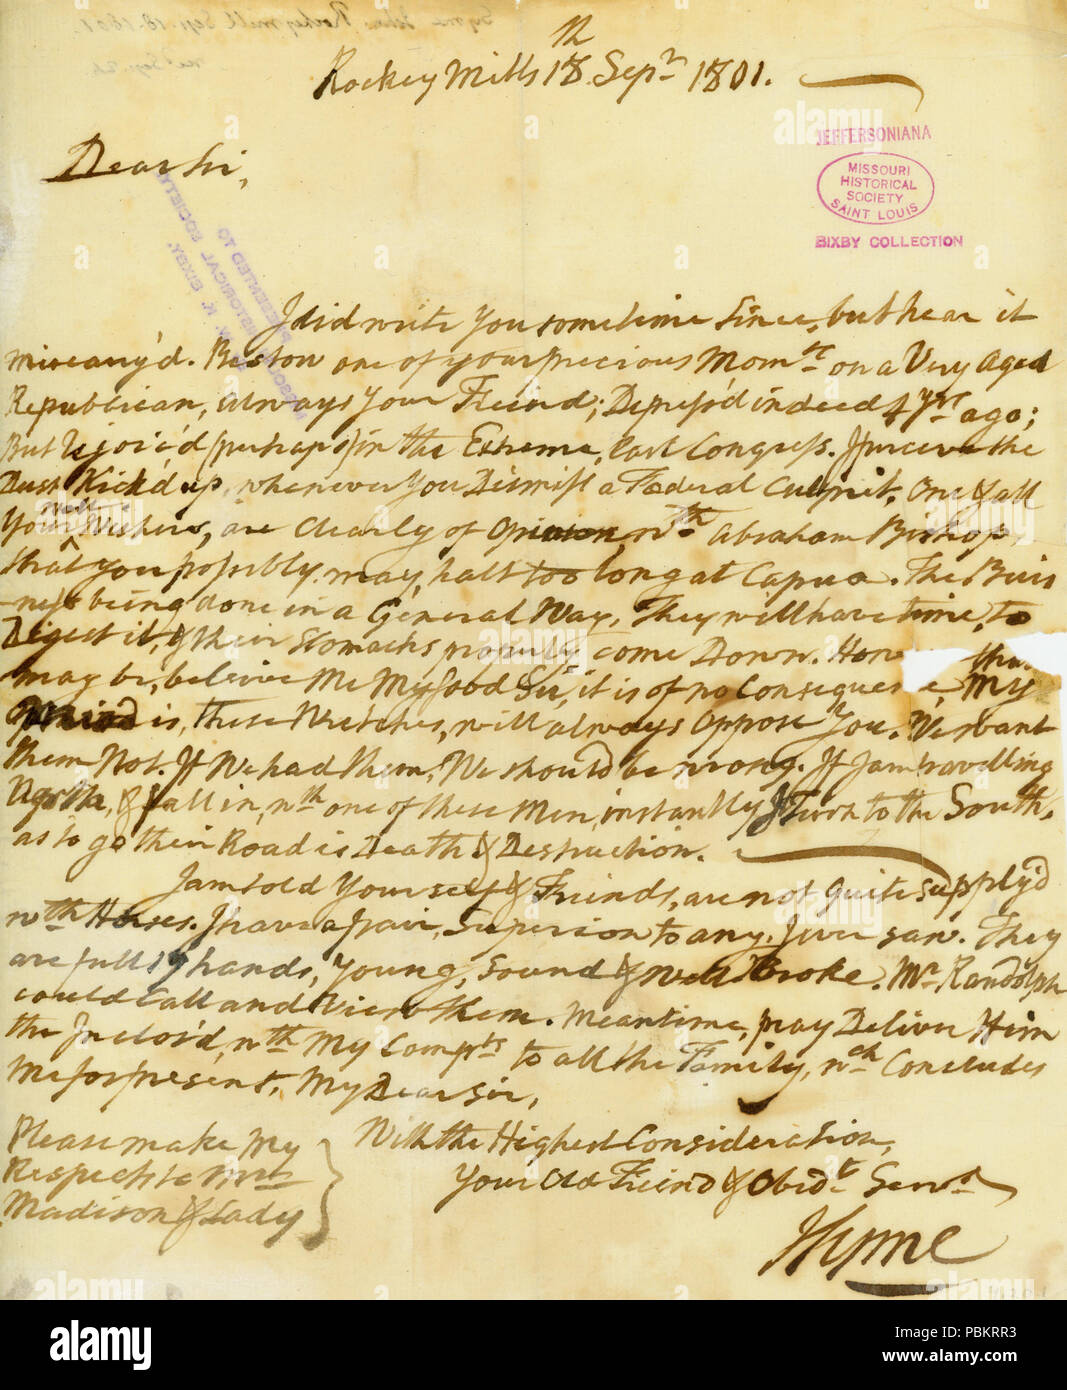 Rockey Mills 18th Sepr 1801.
JEFFERSONIANA
MISSOURI
HISTORICAL
SOCIETY
SAINT LOUIS
BIXBY COLLECTION
Dear Sir,
I did write You sometime Since, but hear it
miscarry'd. Bestow one of your precious Momts on a Very Aged
Republican, always Your Friend; Depress'd indeed 4 yrs ago;
But Rejoic'd (perhaps) in the Extreme, last Congress. I perceive the
Dust Kick'd up, whenever You Dismiss a Federal Culprit. One & all
Your Well Wishers, are Clearly of Opinion, wth Abraham Bishop,
that you possibly may halt too long at Capua. The Busi
-ness being done in a General Way, They will have time, to
Digest it, & their Stomachs properly come Down. How
may be, believe Me My good Sir, it is of no Consequence, My
is, these Wretches, will always Oppose You. We want
them Not. If We had them, We should be wrong. If I am travelling
North, & fall in, wth one of these Men, instantly I Turn to the South,
as to go their Road is Death & Destruction.
I am told Yourself & Friends, are not quite supply'd
wth Horses. I have a pair, Superior to any, I ever saw. They
are full 15 hands, Young, Sound & Well Broke. Mr Randolph
could Call and View them. Meantime, pray Deliver Him
the Inclos'd, wth My Compts to all the Family, wch Concludes
Me for present, My Dear Sir,
With the Highest Consideration,
Your Old Friend & Obidt Servt
JSyme
Please make My
Respects to Mr
Madison & Lady
alamy
Image ID: PBKRR3
www.alamy.com